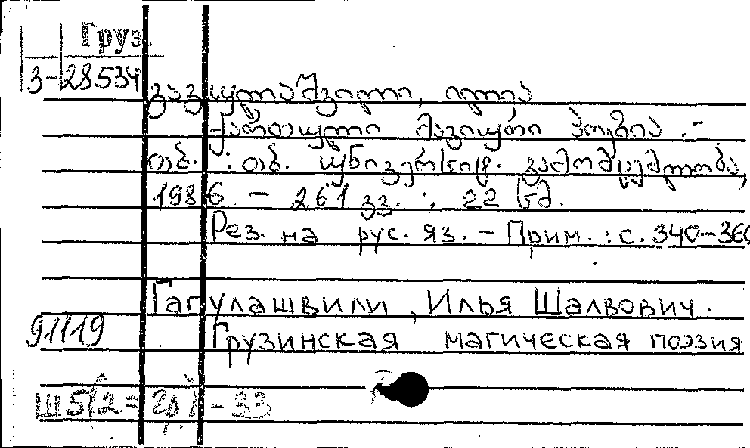 Груз.
3-28534
გაგულაშვილი, ილია
ქართული მაგიური პოეზია .-
თბ. : თბ. უნივერსიტ. გამომცემლობა,
1986. - 261 გვ. ; 22 სმ.
Рез. на рус. яз. - Прим. : с. 340-360
Гагулашвили, Илья Шалвович.
91119
Грузинская магическая поэзия
Ш5(2=Гр) - 33